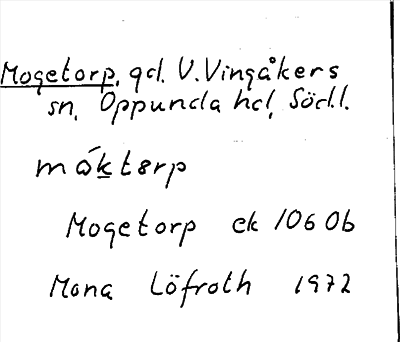 Mogetorp, gd. V. Vingåkers
sn, Oppunda hd, Södl.
mók̲tərp
Mogetorp ek 106 0b
Mona Löfroth 1972